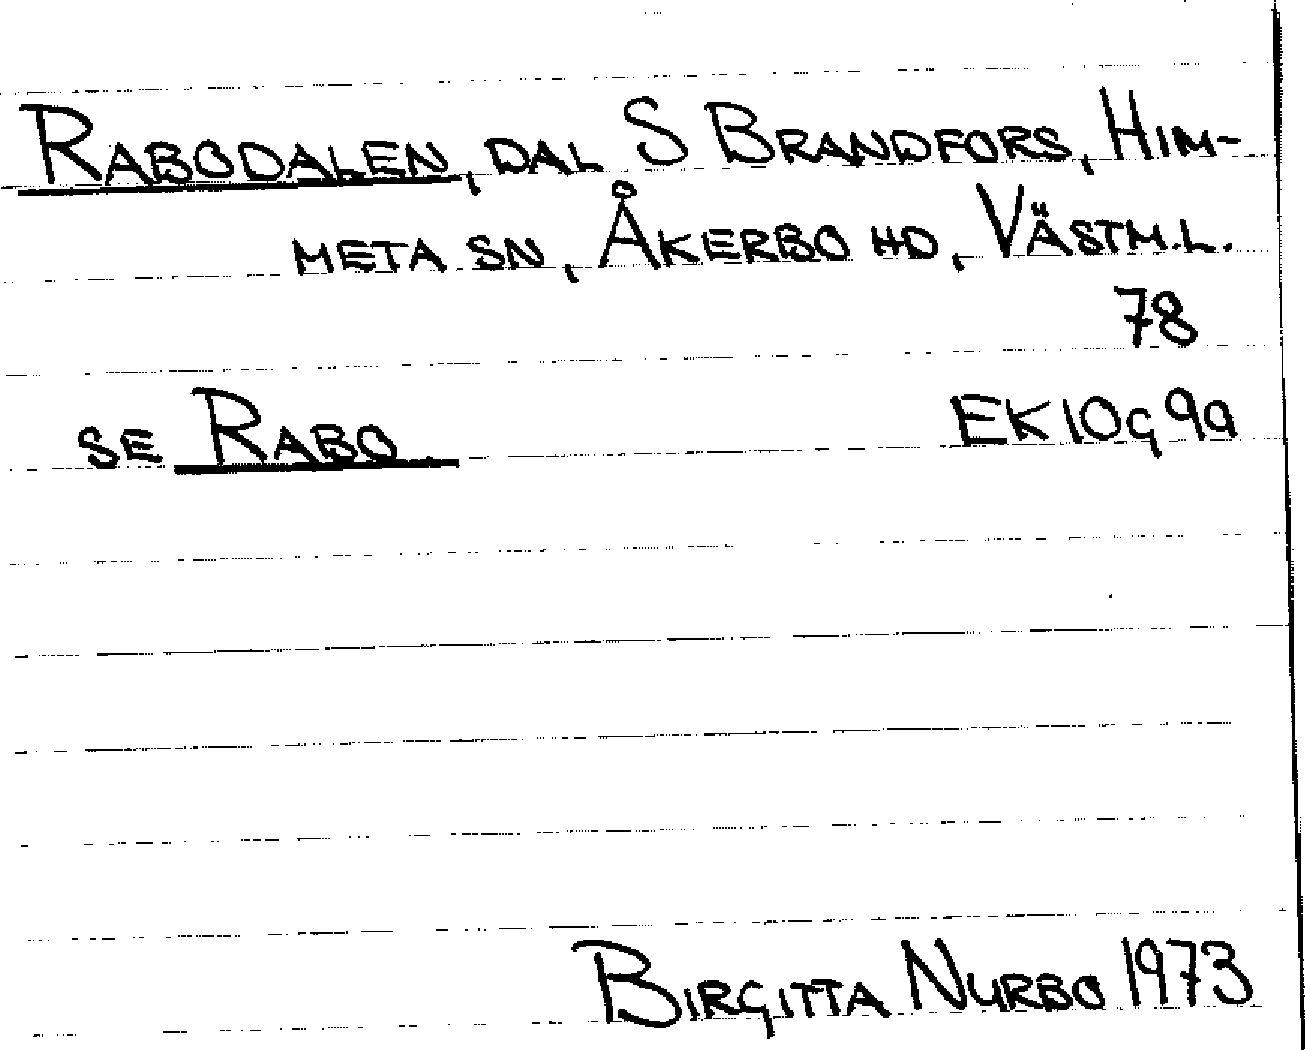 RABODALEN, DAL S BRANDFORS, HIM-
META SN, ÅKERBO HD, VÄSTM.L.
78
SE RABO EK 10g 9a
BIRGITTA NURBO 1973